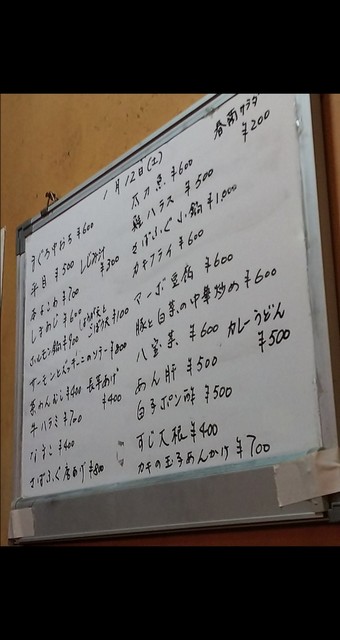 1月12日(土)
春雨サラダ
¥200
まぐろ中おち ¥600
平目 ¥500
しじみ汁
¥300
本まぐろ ¥700
しまあじ ¥600
ホルモン鍋 ¥900
ごぼう天 ¥100
サーモンとズッキーニのソテー ¥800
茶わんむし ¥400
長芋あげ
¥400
牛ハラミ ¥700
なまこ ¥400
さばふぐ唐あげ ¥800
太刀魚 ¥600
鮭ハラス ¥500
さばふぐ小鍋 ¥1,000
カキフライ ¥600
マーボ豆腐 ¥600
豚と白菜の中華炒め ¥600
八宝菜 ¥600
カレーうどん
¥500
あん肝 ¥500
白子ポン酢 ¥500
すじ大根 ¥400
カキの玉子あんかけ ¥700